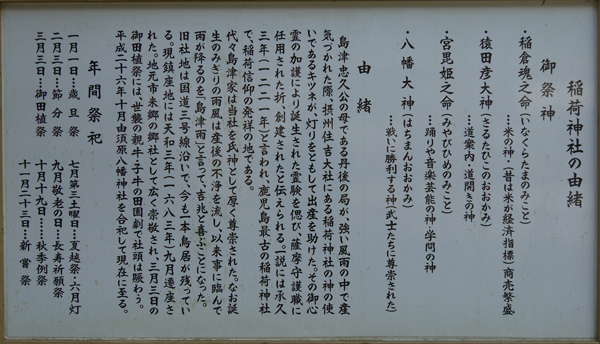 稲荷神社の由緒
御祭神
・稲倉魂之命(いなくらたまのみこと)
…米の神・(昔は米が経済指標)商売繁盛
・猿田彦大神(さるたひこのおおかみ)
…道案内・道開きの神
・宮毘姫之命(みやびひめのみこと)
…踊りや音楽芸能の神・学問の神
・八幡大神(はちまんおおかみ)
…戦いに勝利する神(武士たちに尊崇された)
由緒
島津忠久公の母である丹後の局が、強い風雨の中で産
気づかれた際、摂州住吉大社にある稲荷神社の神の使
いであるキツネが、灯りをともして出産を助けた。その御心
霊の加護により誕生された霊験を偲び、薩摩守護職に
任用された折、創建されたと伝えられる。(一説には承久
三年(一二二一年)と言われ、鹿児島最古の稲荷神社
で、稲荷信仰の発祥の地である。
代々島津家は当社を氏神として厚く尊崇された。なお誕
生のみぎりの雨風は産後の不浄を流し、以来事に臨んで
雨が降るのを「島津雨」と言って、吉兆と喜ぶことになった。
旧社地は国道三号線沿いで、今も一本鳥居が残ってい
る。現鎮座地には天和三年(一六八三年)九月遷座さ
れた。地元市来郷の郷社として広く崇敬され、三月三日の
御田植祭には、世襲の親牛子牛の田園劇で社頭は賑わう。
平成二十六年十月由須原八幡神社を合祀して現在に至る。
年間祭祀
一月一日…歳旦祭
七月第三土曜日…夏越祭・六月灯
二月三日…節分祭
九月敬老の日…長寿祈願祭
三月三日…御田植祭
十月十九日……秋季例祭
十一月二十三日…新嘗祭